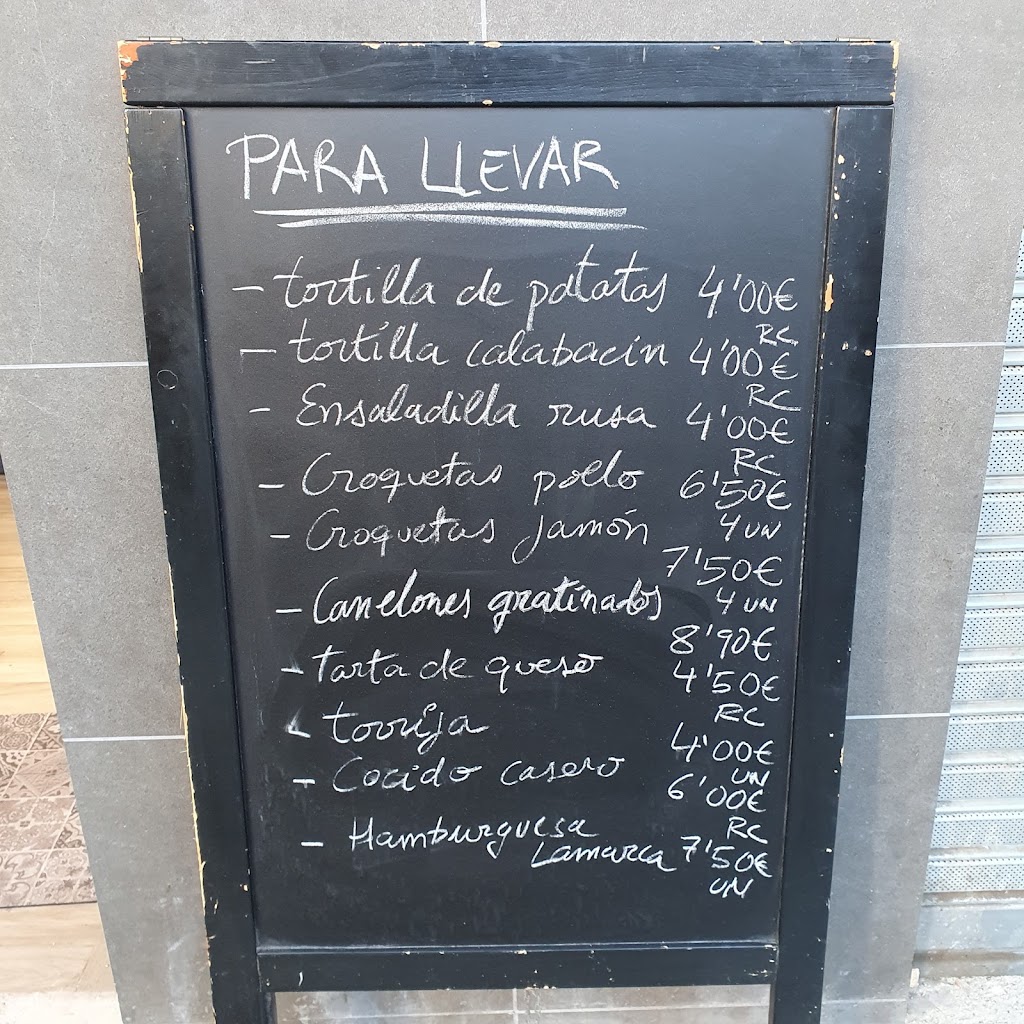 PARA LLEVAR
- tortilla de patatas 4'00€
RC
- tortilla calabacín 4'00€
RC
- Ensaladilla rusa 4'00€
RC
- Croquetas pollo 6'50€
4 UN
- Croquetas jamón 7'50€
4 UN
- Canelones gratinados 8'90€
- Tarta de queso 4'50€
RC
- torrija 4'00€
UN
- Cocido casero 6'00€
RC
- Hamburguesa
Lamarca 7'50€
UN